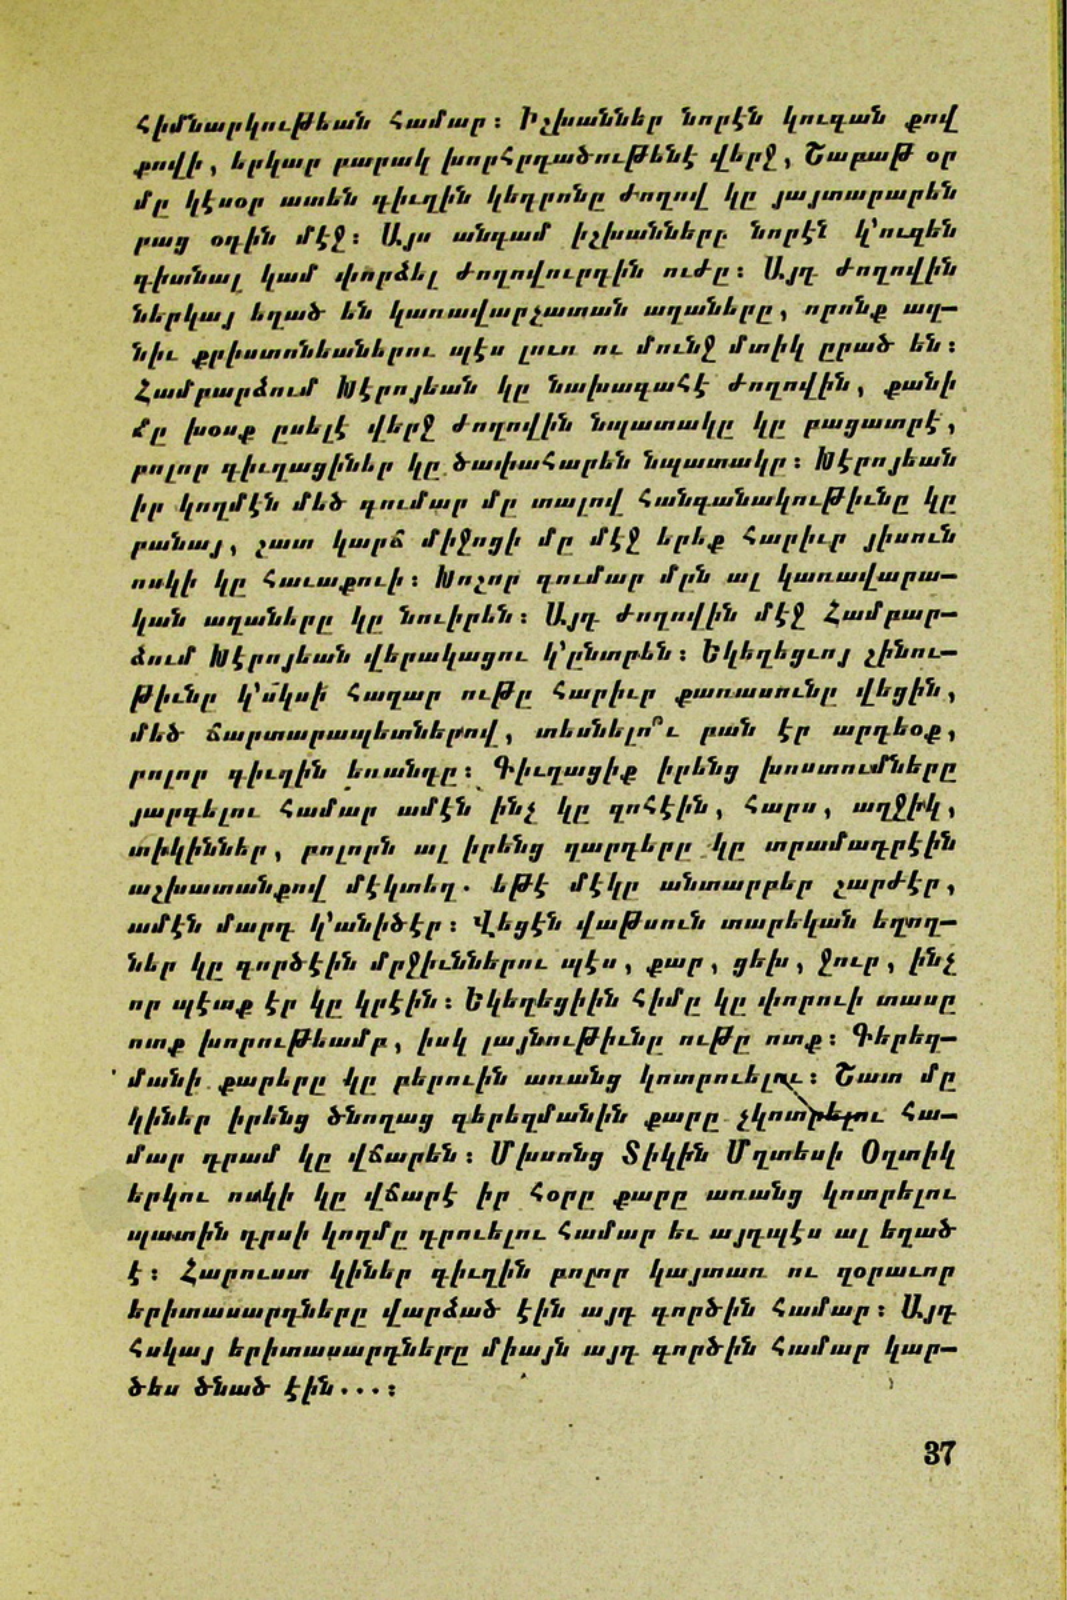 հիմնարկութեան համար։ Իչխաններ նորէն կուգան քով
քովի, երկար բարակ խորհրդածութենէ վերջ, Շաբաթ օր
մը կէսօր ատեն գիւղին կեդրոնը ժողով կը յայտարարեն
բաց օդին մէջ։ Այս անգամ իչխանները նորէն կ՚ուզեն
գիտնալ կամ փորձել ժողովուրդին ուժը։ Այդ ժողովին
ներկայ եղած են կառավարչատան աղաները, որոնք ազ—
նիւ քրիստոնեաներու պէս լուռ ու մունջ մտիկ ըրած են։
Համբարձում Խէրոյեան կը նախագահէ ժողովին, քանի
մը խօսք ըսելէ վերջ ժողովին նպատակը կը բացատրէ,
բոլոր գիւղացիներ կը ծափահարեն նպատակը։ Խէրոյեան
իր կողմէն մեծ գումար մը տալով հանգանակութիւնը կը
բանայ, շատ կարճ միջոցի մը մէջ երեք հարիւր յիսուն
ոսկի կը հաւաքուի։ Խոշոր գումար մըն ալ կառավարա—
կան աղաները կը նուիրեն։ Այդ ժողովին մէջ Համբար—
ձում Խէրոյեան վերակացու կ՚ընտրեն։ Եկեղեցւոյ շինու—
թիւնը կ՚սկսի հազար ութը հարիւր քառասունը վեցին,
մեծ ճարտարապետներով, տեսնելո՞ւ բան էր արդեօք,
բոլոր գիւղին եռանդը։ Գիւղացիք իրենց խոստումները
յարգելու համար ամէն ինչ կը զոհէին, հարս, աղջիկ,
տիկիններ, բոլորն ալ իրենց զարդերը կը տրամադրէին
աշխատանքով մէկտեղ. եթէ մէկը անտարբեր շարժէր,
ամէն մարդ կ՚անիծէր։ Վեցէն վաթսուն տարեկան եղող—
ներ կը գործէին մրջիւններու պէս, քար, ցեխ, ջուր, ինչ
որ պէտք էր կը կրէին։ Եկեղեցիին հիմը կը փորուի տասը
ոտք խորութեամբ, իսկ լայնութիւնը ութը ոտք։ Գերեզ—
մանի քարերը կը բերուին առանց կոտրուելու։ Շատ մը
կիներ իրենց ծնողաց գերեզմանին քարը չկոտրելու հա—
մար դրամ կը վճարեն։ Մխսոնց Տիկին Մղտեսի Օղտիկ
երկու ոսկի կը վճարէ իր հօրը քարը առանց կոտրելու
պատին դրսի կողմը դրուելու համար եւ այդպէս ալ եղած
է։ Հարուստ կիներ գիւղին բոլոր կայտառ ու զօրաւոր
երիտասարդները վարձած էին այդ գործին համար։ Այդ
հսկայ երիտասարդները միայն այդ գործին համար կար—
ծես ծնած էին...։
37